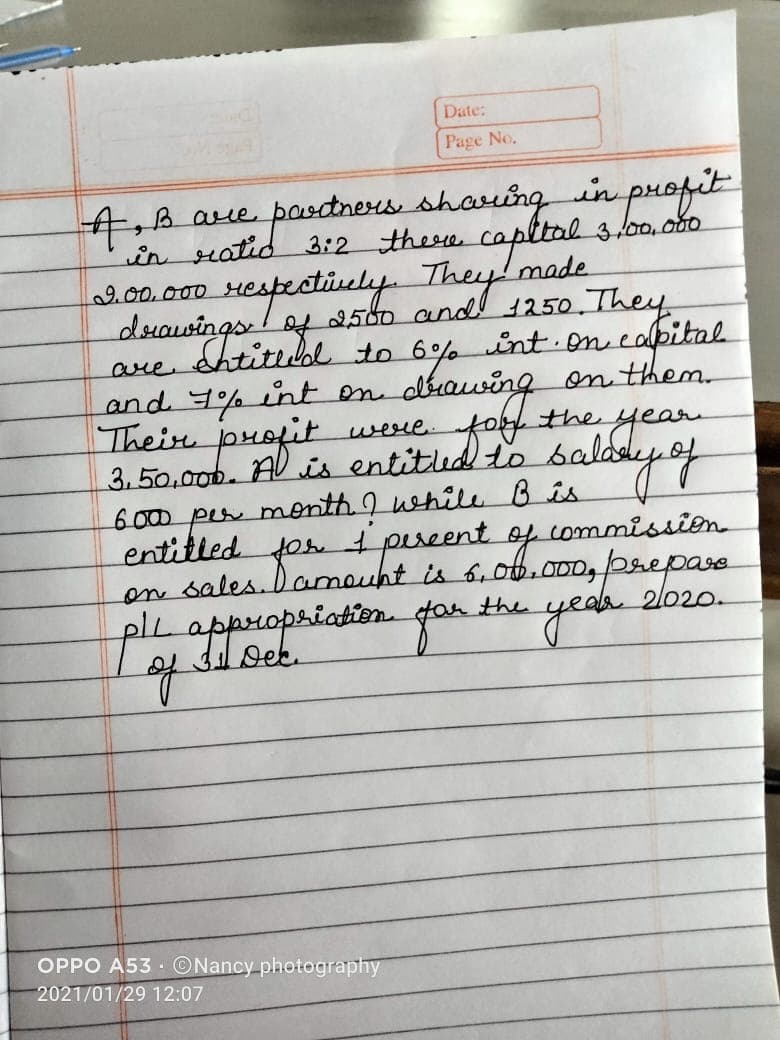 Date:
Page No.
A, B are partners sharing in profit
in ratio 3:2 there capital 3,00,000
2,00,000 respectively. They made
drawings of 2500 and 1250. They
are entitled to 6% int. on capital
and 7% int on drawing on them.
Their profit were for the year
3,50,000. A is entitled to salary of
6000 per month, while B is
entitled for 1 percent of commission
on sales. amount is 6,00,000, prepare
P/L appropriation for the year 2020.
of 31 Dec.
OPPO A53 · ©Nancy photography
2021/01/29 12:07